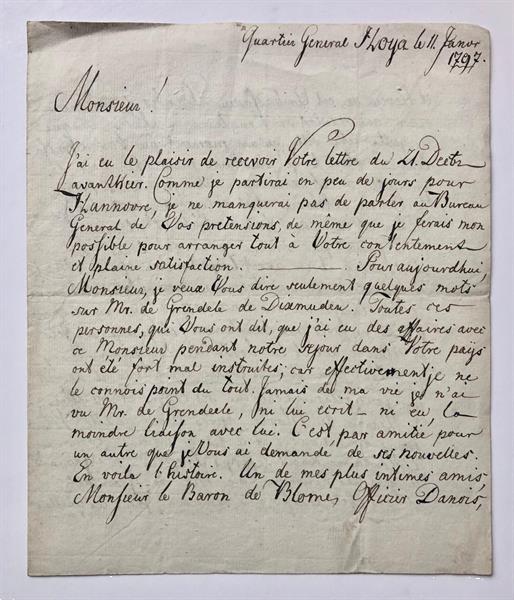 Quartier General Hoya le 11. Janvr
1797.
Monsieur!
J'ai eu le plaisir de recevoir Votre lettre du 21. Decbr
avanthier. Comme je partirai en peu de jours pour
Hannovre, je ne manquerai pas de parler au Bureau
General de Vos pretensions, de même que je ferais mon
possible pour arranger tout à Votre contentement
et plaine satisfaction. ——— Pour aujourdhui
Monsieur, je veux Vous dire seulement quelques mots
sur Mr. de Grendele de Dixmuden. Toutes ces
personnes, qui Vous ont dit, que j'ai eu des affaires avec
ce Monsieur pendant notre sejour dans Votre pays
ont été fort mal instruites; car effectivement je ne
le connois point du tout. Jamais de ma vie je n'ai
vu Mr. de Grendeele, ni lui ecrit – ni eu la
moindre liaison avec lui. C'est par amitié pour
un autre que je Vous ai demandé de ses nouvelles.
En voila l'histoire. Un de mes plus intimes amis
Monsieur le Baron de Blome, Officier Danois,